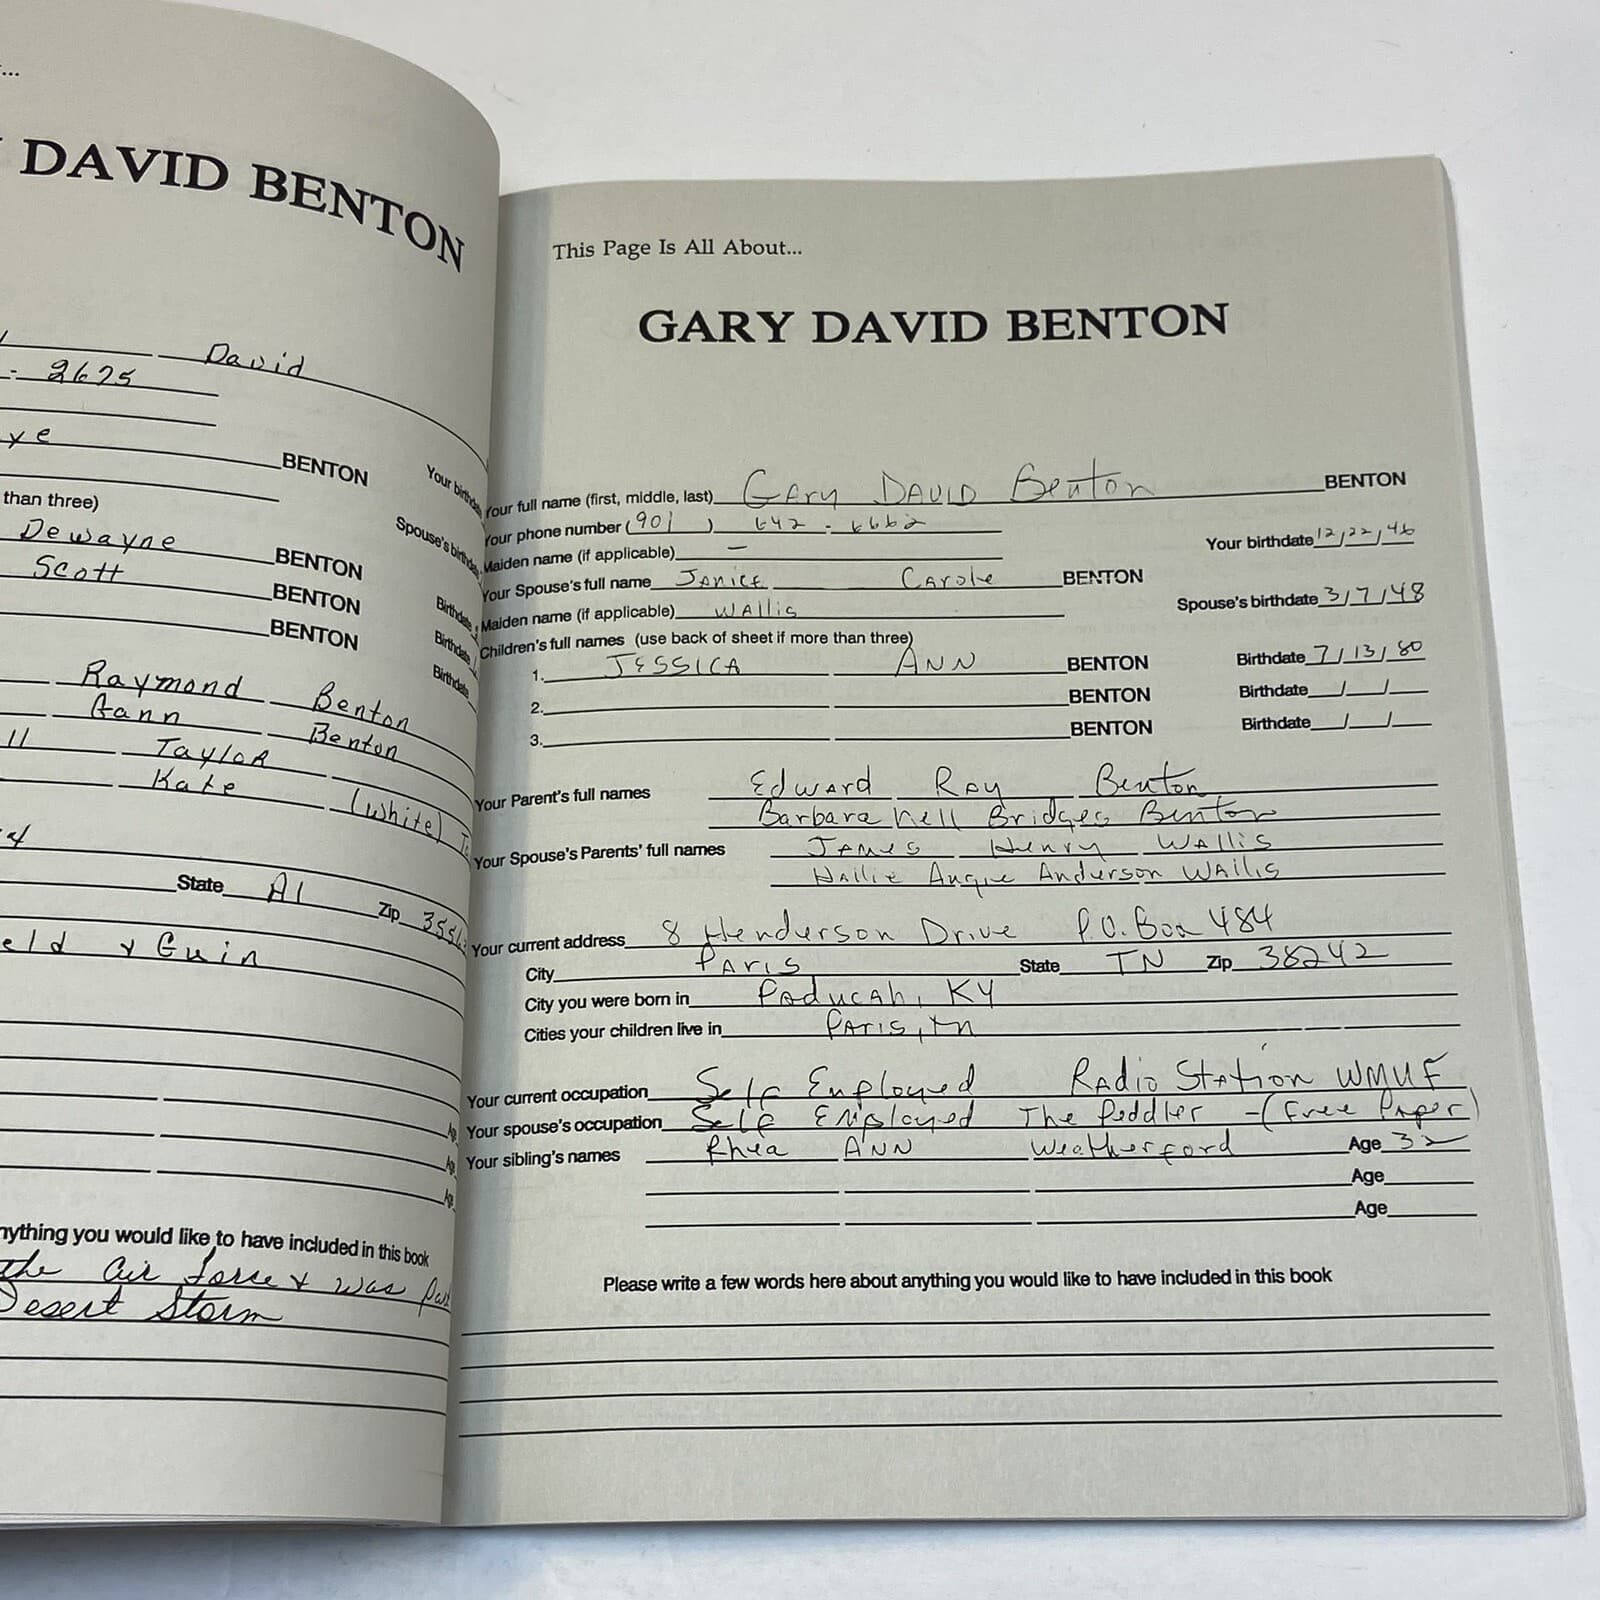 DAVID BENTON
David
- 2675
ye BENTON
Your birthd
than three)
Spouse's birthd
Dewayne BENTON
Scott BENTON
BENTON
Birthdate
Birthdate
Birthdate
Raymond Benton
Gann Benton
ll Taylor
Kate (White)
State Al Zip 3556
eld & Guin
Ag
Ag
Ag
nything you would like to have included in this book
the Air Force & was Par
Desert Storm
This Page Is All About...
GARY DAVID BENTON
Your full name (first, middle, last) GAry DAVID Benton BENTON
Your phone number (901) 642 - 6662
Your birthdate 12/22/46
Maiden name (if applicable) -
Your Spouse's full name Janice Carole BENTON
Spouse's birthdate 3/7/48
Maiden name (if applicable) WAllis
Children's full names (use back of sheet if more than three)
1. JESSICA ANN BENTON Birthdate 7/13/80
2. BENTON Birthdate / /
3. BENTON Birthdate / /
Your Parent's full names Edward Ray Benton
Barbara Nell Bridges Benton
Your Spouse's Parents' full names James Henry WAllis
Hailie Angie Anderson WAllis
Your current address 8 Henderson Drive P.O. Box 484
City PAris State TN Zip 38242
City you were born in Paducah, KY
Cities your children live in PAris, tn
Your current occupation Self Employed RAdio Station WMUF
Your spouse's occupation Self Employed The Peddler - (Free Paper)
Your sibling's names Rhea ANN Weatherford Age 32
Age
Age
Please write a few words here about anything you would like to have included in this book